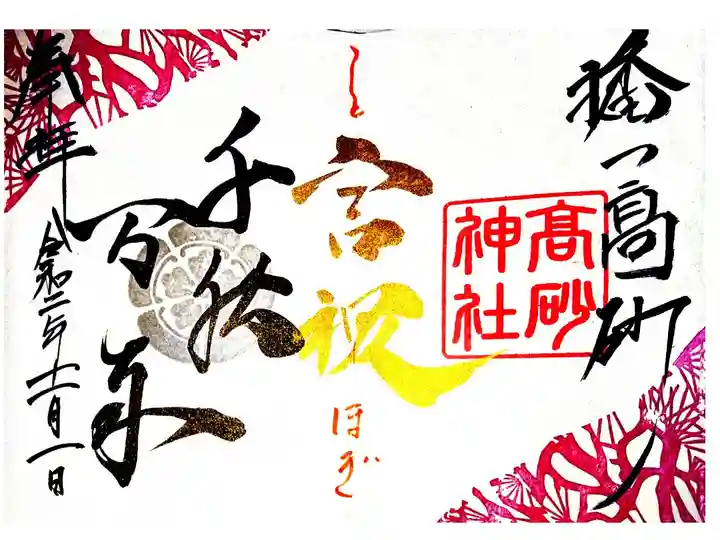 高砂
高砂
神社
こと
言祝
ほぎ
千秋
万
奉拝
令和二年十一月一日